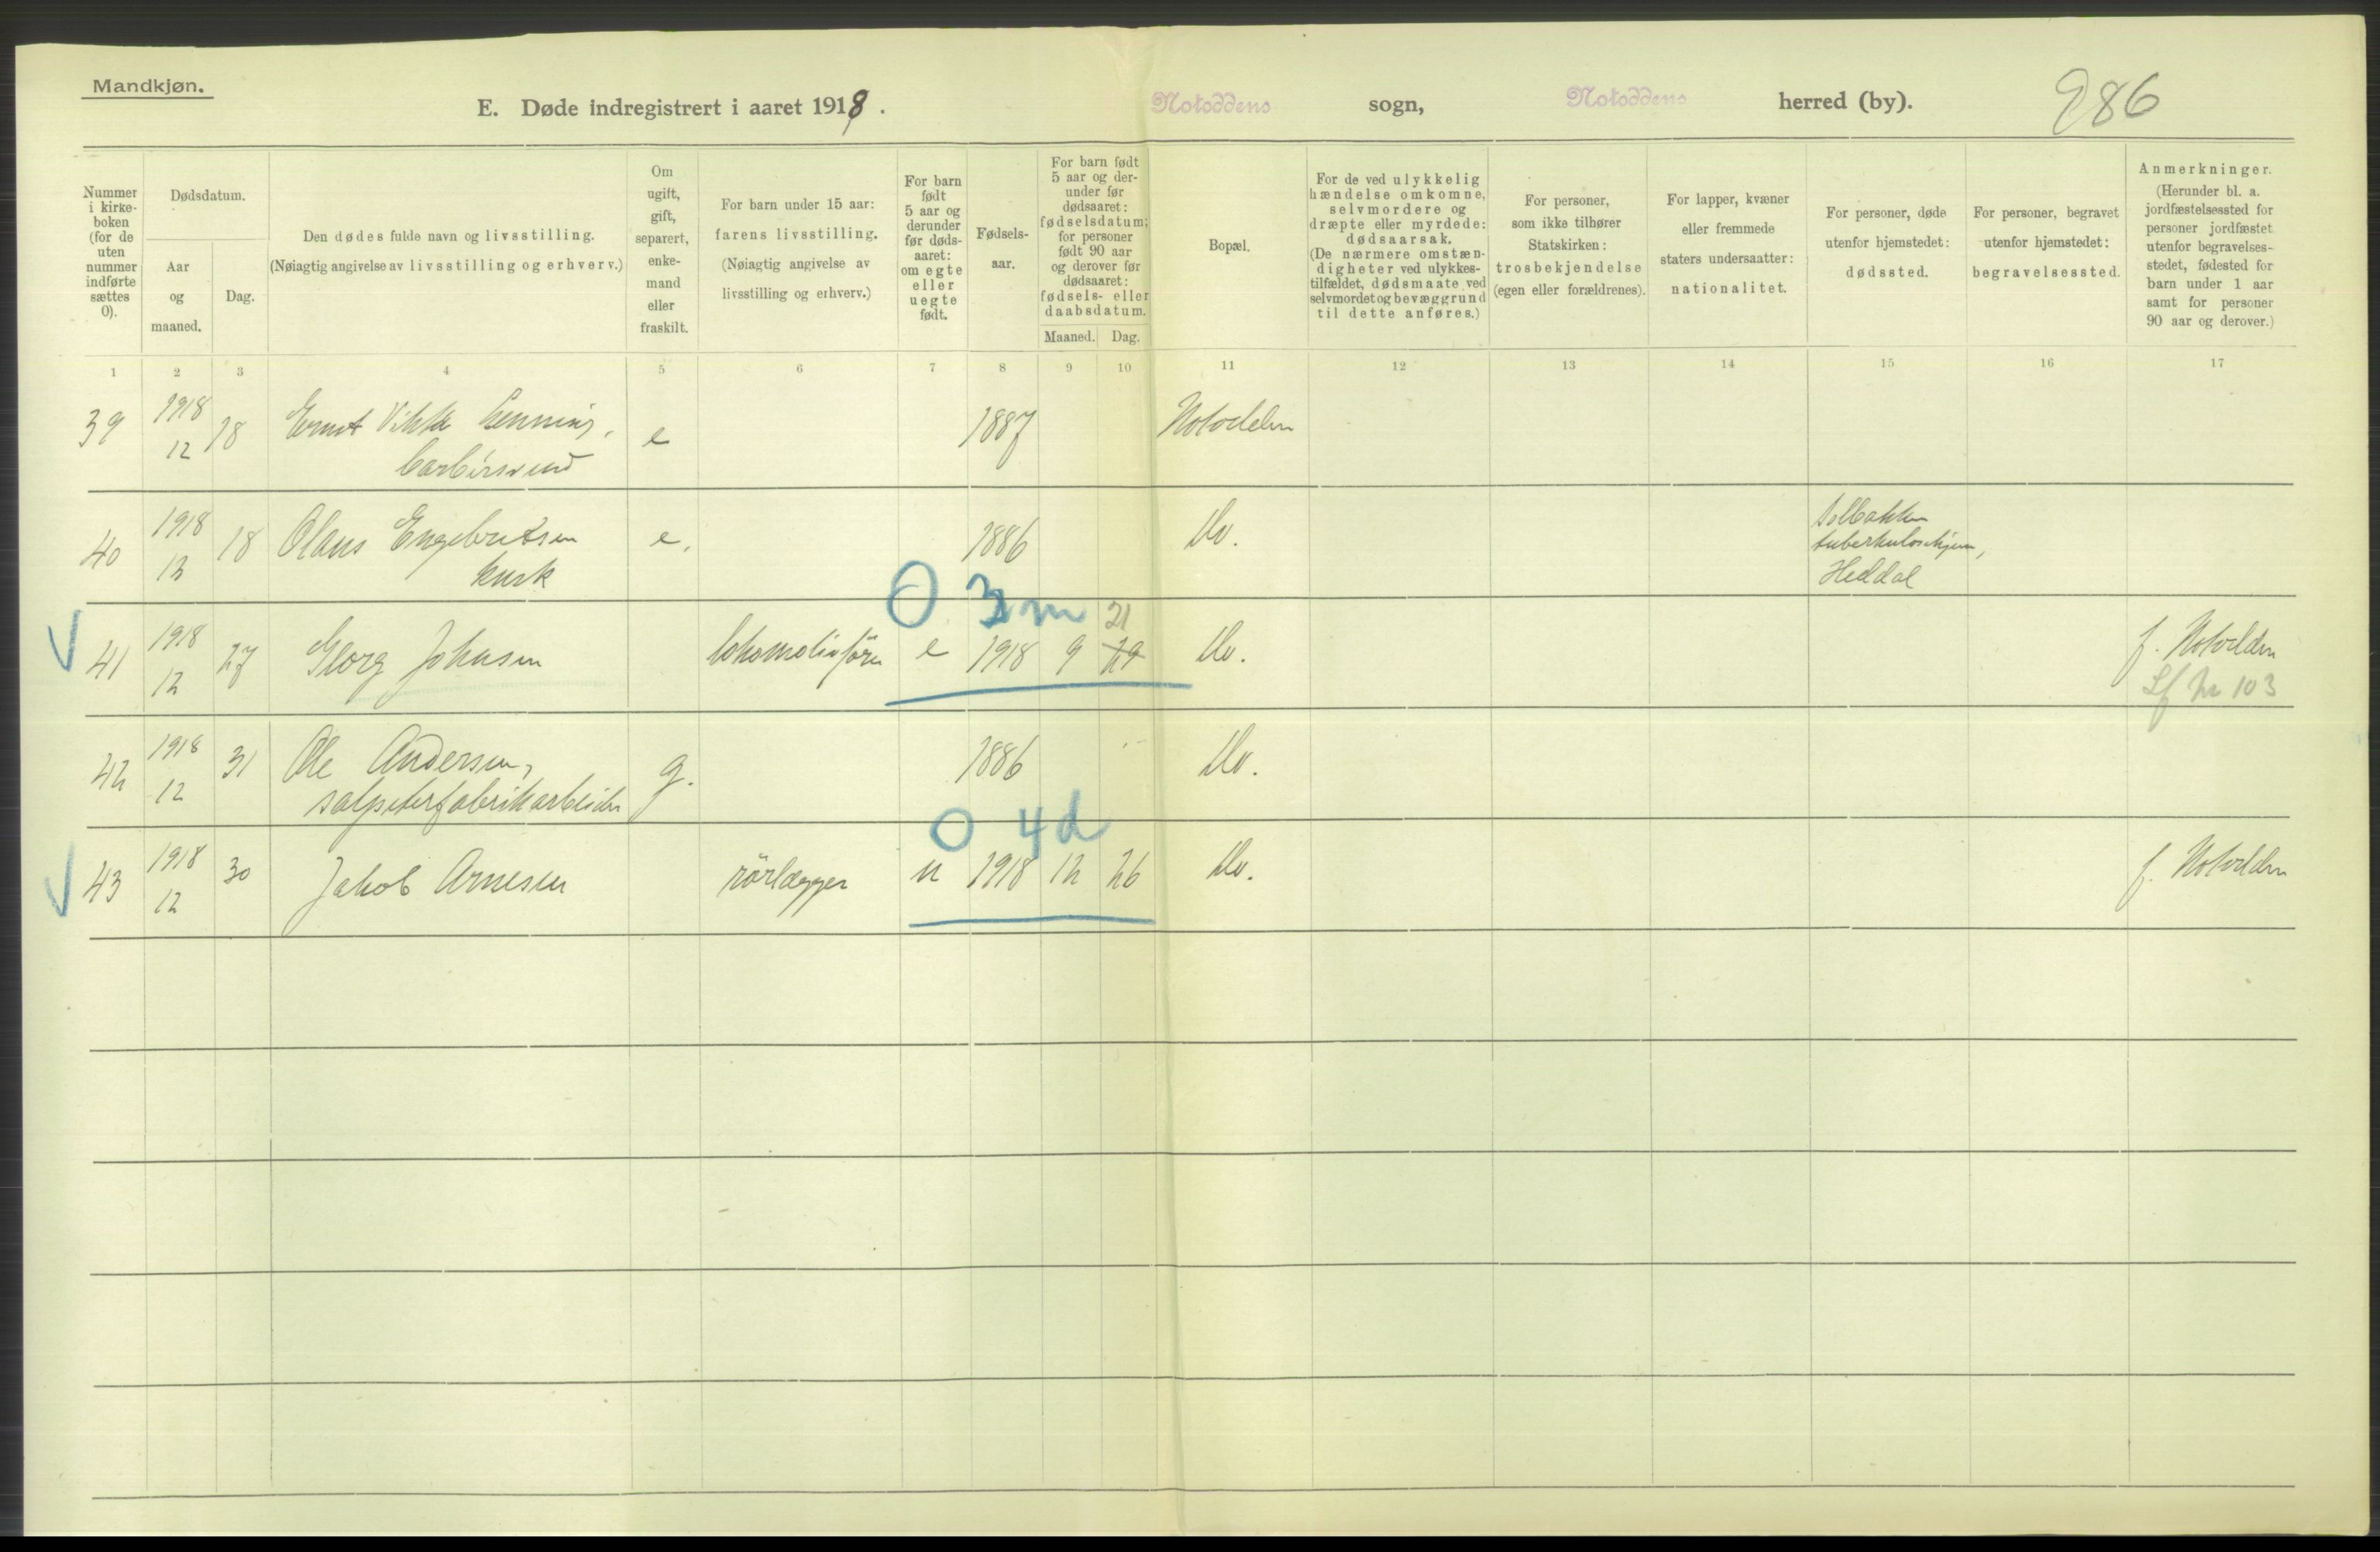 Mandkjøn.
E. Døde indregistrert i aaret 1918.
Notoddens sogn, Notoddens herred (by).
286
Nummer i kirke- boken (for de uten nummer indførte sættes 0).
Dødsdatum.
Aar og maaned.
Dag.
Den dødes fulde navn og livsstilling.
(Nøiagtig angivelse av livsstilling og erhverv.)
Om ugift, gift, separert, enke- mand eller fraskilt.
For barn under 15 aar: farens livsstilling.
(Nøiagtig angivelse av livsstilling og erhverv.)
For barn født 5 aar og derunder før døds- aaret: om egte eller uegte født.
Fødsels- aar.
For barn født 5 aar og der- under før dødsaaret: fødselsdatum; for personer født 90 aar og derover før dødsaaret: fødsels- eller daabsdatum.
Maaned. Dag.
Bopæl.
For de ved ulykkelig hændelse omkomne, selvmordere og dræpte eller myrdede: dødsaarsak.
(De nærmere omstæn- digheter ved ulykkes- tilfældet, dødsmaate ved selvmordet og bevæggrund til dette anføres.)
For personer, som ikke tilhører Statskirken: trosbekjendelse (egen eller forældrenes).
For lapper, kvæner eller fremmede staters undersaatter: nationalitet.
For personer, døde utenfor hjemstedet: dødssted.
For personer, begravet utenfor hjemstedet: begravelsessted.
Anmerkninger.
(Herunder bl. a. jordfæstelsessted for personer jordfæstet utenfor begravelses- stedet, fødested for barn under 1 aar samt for personer 90 aar og derover.)
1 2 3 4 5 6 7 8 9 10 11 12 13 14 15 16 17
39 1918 12 18 Ernst Henning, e 1887 Notodden
barbersvend
40 1918 12 18 Olaus Engebretsen e. 1886 Do. Solbakken tuberkulosehjem, Heddal
kusk
0 3 m
41 1918 12 27 Georg Johnsen lokomotivfører e 1918 9 29 21 Do. f. Notodden
Lf nr 103
42 1918 12 31 Ole Andersen, g. 1886 Do.
salpeterfabrikarbeider
0 4 d
43 1918 12 30 Jakob Arnesen rörlægger u 1918 12 26 Do. f. Notodden